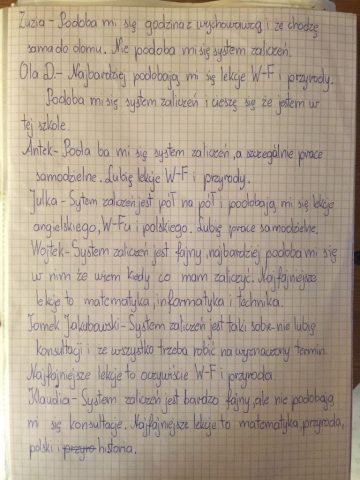 Zuzia - Podoba mi się godzina z wychowawcą i że chodzę
sama do domu. Nie podoba mi się system zaliczeń.
Ola D. - Najbardziej podobają mi się lekcje W-F i przyrody.
Podoba mi się system zaliczeń i cieszę się że jestem w
tej szkole.
Antek - Podoba mi się system zaliczeń, a szczególnie prace
samodzielne. Lubię lekcje W-F i przyrody.
Julka - Sytem zaliczeń jest pół na pół i podobają mi się lekcje
angielskiego, W-Fu i polskiego. Lubię prace samodzielne.
Wojtek - System zaliczeń jest fajny, najbardziej podoba mi się
w nim że wiem kiedy co mam zaliczyć. Najfajniejsze
lekcje to matematyka, informatyka i technika.
Tomek Jakubowski - System zaliczeń jest taki sobie - nie lubię
konsultacji i że wszystko trzeba robić na wyznaczony termin.
Najfajniejsze lekcje to oczywiście W-F i przyroda.
Klaudia - System zaliczeń jest bardzo fajny, ale nie podobają
mi się konsultacje. Najfajniejsze lekcje to matematyka, przyroda,
polski i przyro historia.